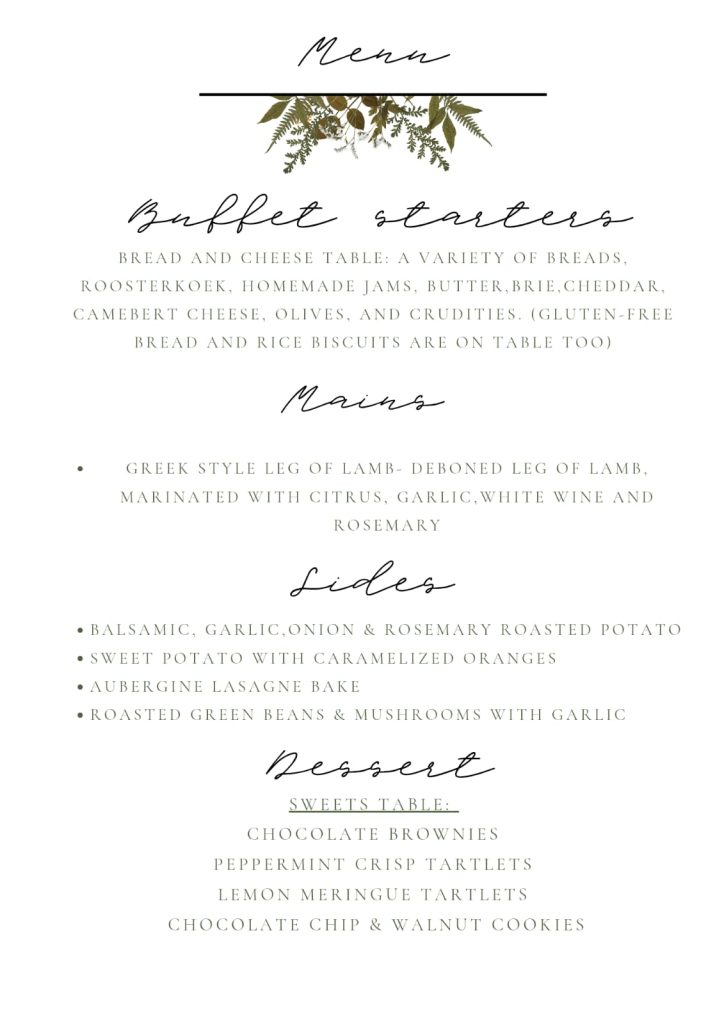 Menu
Buffet starters
BREAD AND CHEESE TABLE: A VARIETY OF BREADS,
ROOSTERKOEK, HOMEMADE JAMS, BUTTER,BRIE,CHEDDAR,
CAMEBERT CHEESE, OLIVES, AND CRUDITIES. (GLUTEN-FREE
BREAD AND RICE BISCUITS ARE ON TABLE TOO)
Mains
• GREEK STYLE LEG OF LAMB- DEBONED LEG OF LAMB,
MARINATED WITH CITRUS, GARLIC,WHITE WINE AND
ROSEMARY
Sides
• BALSAMIC, GARLIC,ONION & ROSEMARY ROASTED POTATO
• SWEET POTATO WITH CARAMELIZED ORANGES
• AUBERGINE LASAGNE BAKE
• ROASTED GREEN BEANS & MUSHROOMS WITH GARLIC
Dessert
SWEETS TABLE:
CHOCOLATE BROWNIES
PEPPERMINT CRISP TARTLETS
LEMON MERINGUE TARTLETS
CHOCOLATE CHIP & WALNUT COOKIES